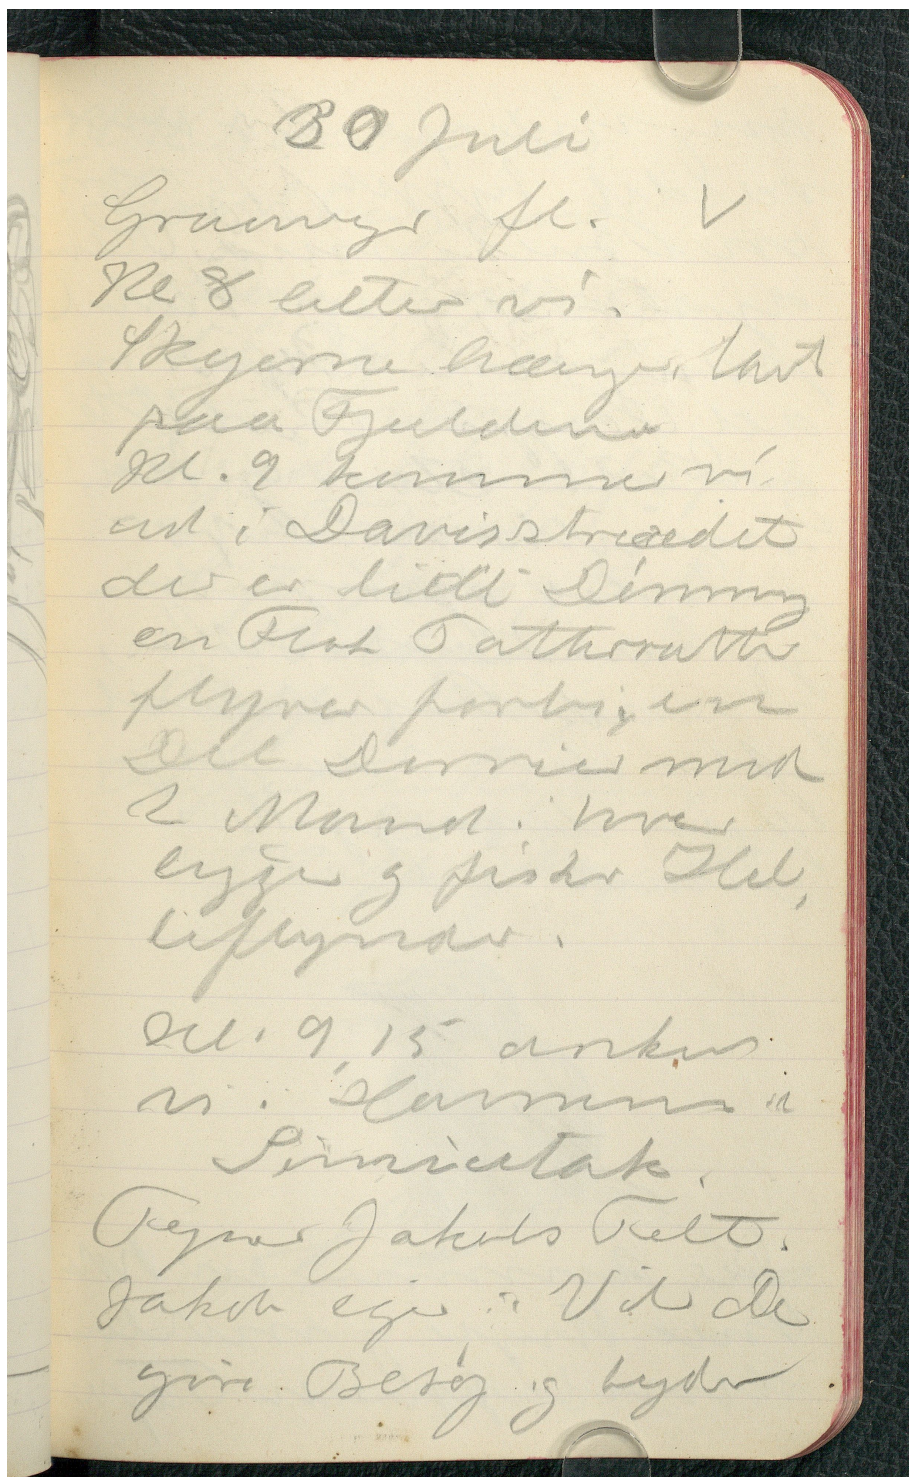 30 Juli
Graavejr fl. V
Kl 8 letter vi.
Skyerne hænger lavt
paa Fjeldene
Kl. 9 kommer vi
ud i Davisstrædet
der er lidt Dønning
en Flok Tatteratter
flyver forbi, en
Del Dorrier med
2 Mand i hver
ligger og fisker Hel,
leflynder.
Kl. 9,15 anker
vi i Havnen
Jakobs Telt.
Jakob siger: Vil De
gøre Besøg og byder